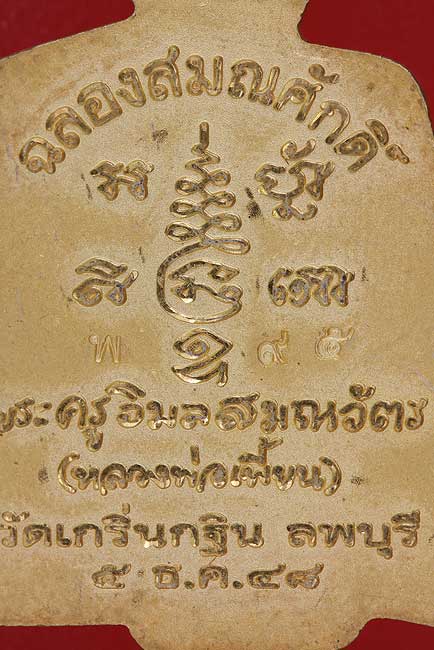 ฉลองสมณศักดิ์
พ ๙๕
พระครูวิมลสมณวัตร
(หลวงพ่อเพี้ยน)
วัดเกริ่นกฐิน ลพบุรี
๕ ธ.ค.๔๘